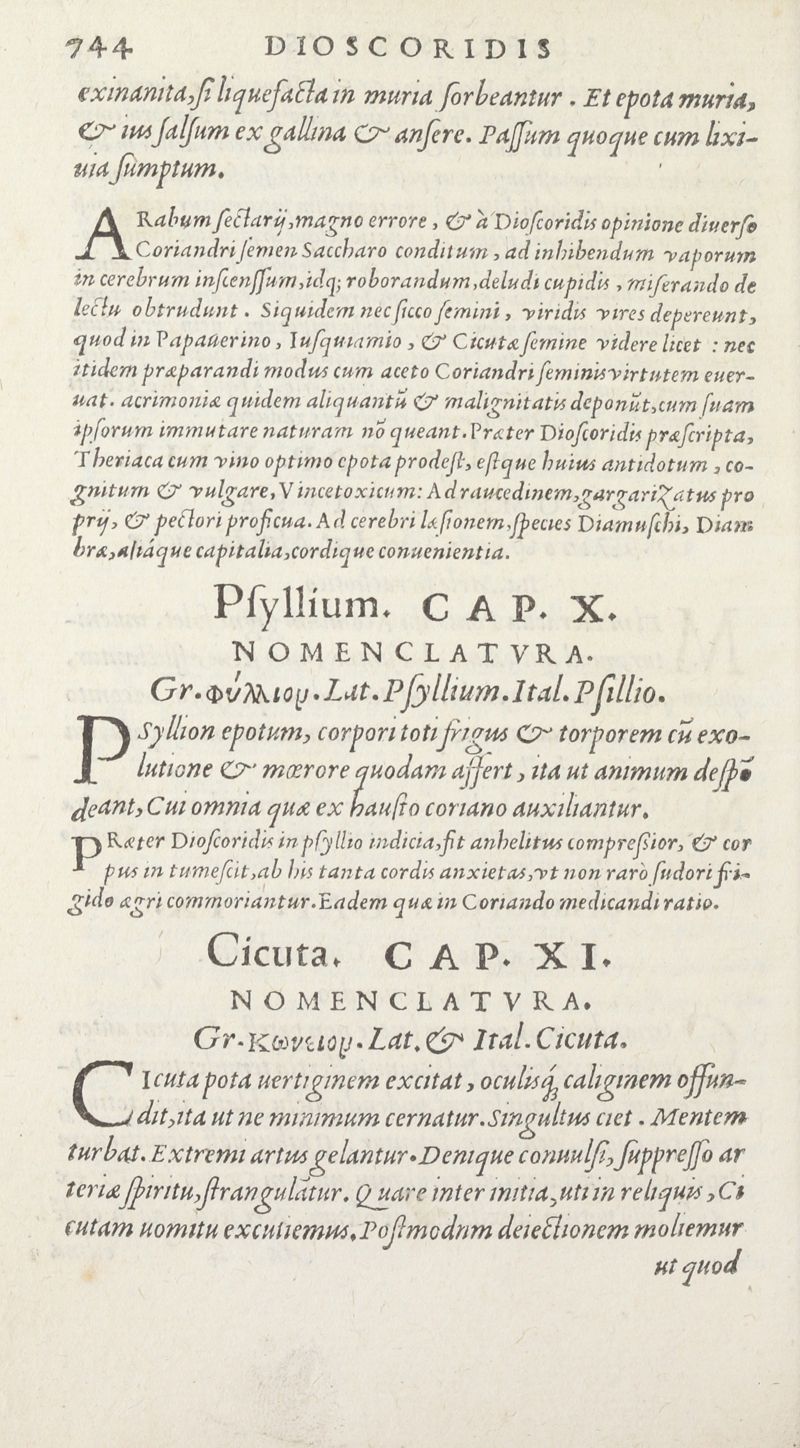 744 DIOSCORIDIS
exinanita,ſi liquefacta in muria ſorbeantur . Et epota muria,
& ius ſalſum ex gallina & anſere. Paſſum quoque cum lixi-
uia ſumptum.
ARabum ſectarij,magno errore , & à Dioſcoridis opinione diuerſo
Coriandri ſemen Saccharo conditum , ad inhibendum vaporum
in cerebrum inſcenſſum,idq; roborandum,deludi cupidis , miſerando de
lectu obtrudunt . Siquidem nec ſicco ſemini , viridis vires depereunt,
quod in Papauerino , Iuſquiamio , & Cicutæ ſemine videre licet : nec
itidem præparandi modus cum aceto Coriandri ſeminis virtutem euer-
uat. acrimoniæ quidem aliquantũ & malignitatis deponũt,cum ſuam
ipſorum immutare naturam nõ queant.Præter Dioſcoridis præſcripta,
Theriaca cum vino optimo epota prodeſt, eſtque huius antidotum , co-
gnitum & vulgare,Vincetoxicum: Ad raucedinem,gargarizatus pro
prij, & pectori proficua. Ad cerebri læſionem,ſpecies Diamuſchi, Diam
bræ,aliáque capitalia,cordique conuenientia.
Pſyllium. CAP. X.
NOMENCLATVRA.
Gr.Φύλλιον.Lat.Pſyllium.Ital.Pſillio.
PSyllion epotum, corpori toti frigus & torporem cũ exo-
lutione & mœrore quodam affert , ita ut animum deſpõ
deant, Cui omnia quæ ex hauſto coriano auxiliantur.
PRæter Dioſcoridis in pſyllio indicia,fit anhelitus compreſsior, & cor
pus in tumeſcit,ab his tanta cordis anxietas,vt non rarò ſudori fri-
gido ægri commoriantur.Eadem quæ in Coriando medicandi ratio.
Cicuta. CAP. XI.
NOMENCLATVRA.
Gr.Κώνειον.Lat.& Ital.Cicuta.
CIcuta pota uertiginem excitat , oculisq́; caliginem offun-
dit,ita ut ne minimum cernatur.Singultus ciet . Mentem
turbat.Extremi artus gelantur.Denique conuulſi,ſuppreſſo ar
teriæ ſpiritu,ſtrangulãtur. Quare inter initia,uti in reliquis ,Ci
cutam uomitu excutiemus.Poſtmodnm deiectionem moliemur
ut quod